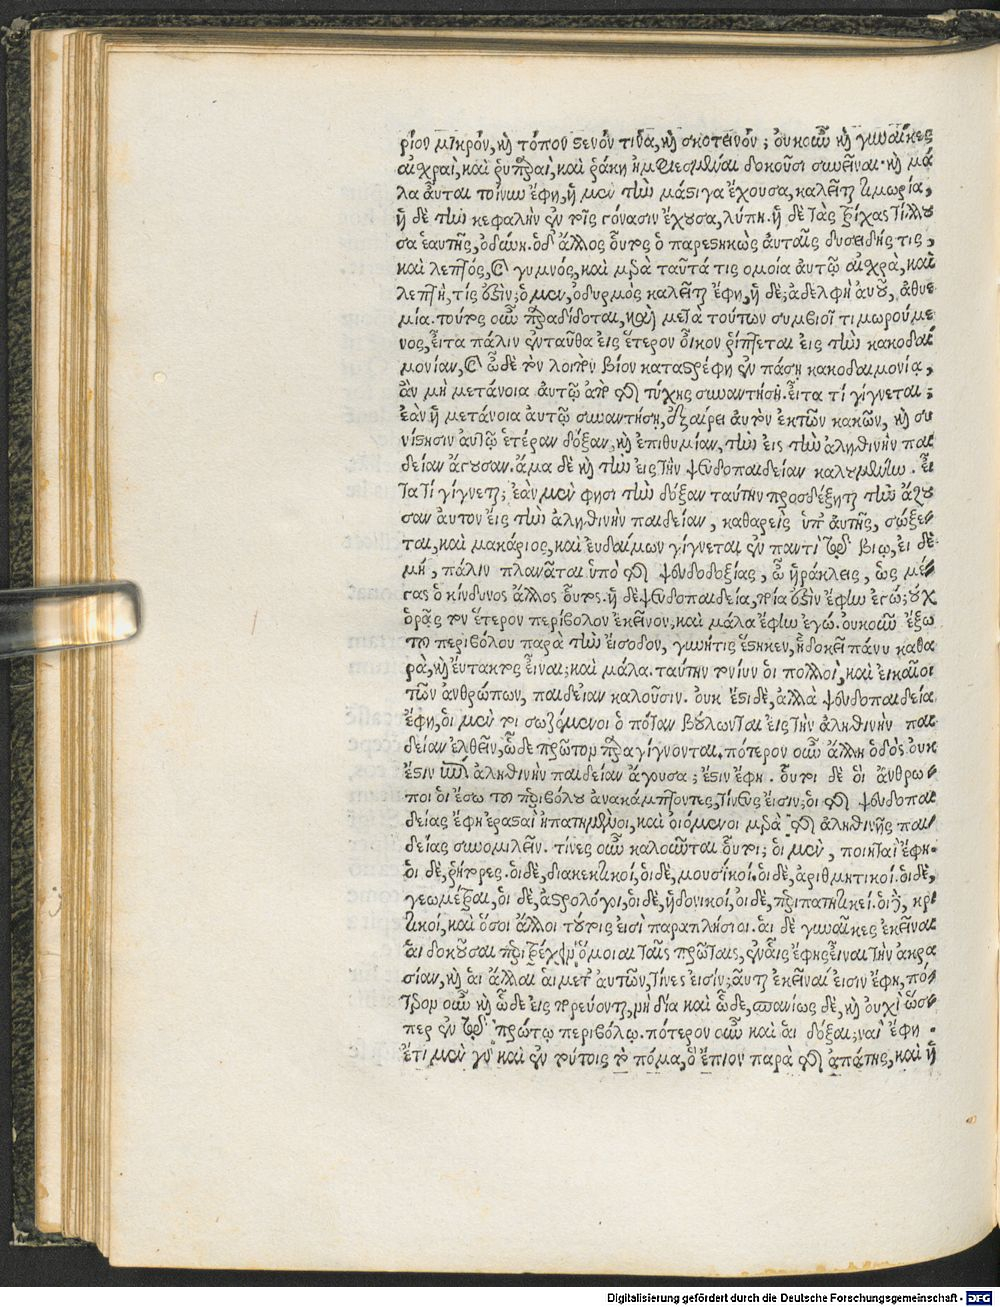 ρίον μικρὸν, καὶ τόπον στενόν τινα, καὶ σκοτεινόν ; ὀυκοῦν καὶ γυναῖκες
αἰχραὶ, καὶ ῥυπαραὶ, καὶ ῥάκη ἠμφιεσμέναι δοκοῦσι συνεῖναι· καὶ μά
λα ἆυται τοίνυν ἔφη, ἡ μὲν τὴν μάστιγα ἔχουσα, καλεῖται τιμωρία,
ἡ δὲ τὴν κεφαλὴν ἐν τοῖς γόνασιν ἔχουσα, λύπη. ἡ δὲ τὰς τρίχας τίλλου
σα ἑαυτῆς, ὀδύνη. ὁδ' ἄλλος οὗτος ὁ παρεστηκὼς ἀυταῖς δυσειδής τις,
καὶ λεπτός, καὶ γυμνός, καὶ μετὰ ταῦτά τις ὁμοία ἀυτῷ αἰχρὰ, καὶ
λεπτὴ, τίς ἐστίν; ὁ μὲν, ὀδυρμὸς καλεῖται ἔφη, ἡ δὲ; ἀδελφὴ ἀυτοῦ, ἀθυ
μία. τούτοις οὖν παραδίδοται, καὶ μετὰ τούτων συμβιοῖ τιμωρούμε
νος, εἶτα πάλιν ἐνταῦθα εἰς ἕτερον ὀῖκον ῥίπτεται εἰς τὴν κακοδαι
μονίαν, καὶ ὧδε τὸν λοιπὸν βίον καταστρέφη ἐν πάσῃ κακοδαιμονίᾳ,
ἂν μὴ μετάνοια ἀυτῷ ἀπὸ τῆς τύχης συναντήσῃ. εἶτα τί γίγνεται ;
ἐὰν ἡ μετάνοια ἀυτῷ συναντήσῃ, ἐξαίρει ἀυτὸν ἐκτῶν κακῶν, καὶ συ
νίστησιν ἀυτῷ ἑτέραν δόξαν, καὶ ἐπιθυμίαν, τὴν εἰς τὴν ἀληθινὴν παι
δείαν ἄγουσαν. ἅμα δὲ καὶ τὴν εἰς τὴν ψευδοπαιδείαν καλουμένην. εἶ
τα τί γίγνεται; ἐὰν μὲν φησι τὴν δόξαν ταύτην προσδέξηται τὴν ἄξου
σαν αυτον εἰς τὴν ἀληθινὴν παιδείαν, καθαρεὶς ὑπ' ἀυτῆς, σώζε
ται, καὶ μακάριος, καὶ ευδαίμων γίγνεται ἐν παντὶ τῷ βιῳ, ἐι δὲ
μή, πάλιν πλανᾶται ὑπὸ τῆς ψευδοδοξίας, ὦ ἡράκλεις, ὡς μέ
γας ὁ κίνδυνος ἄλλος οὗτος. ἡ δὲ ψευδοπαιδεία, ποία ἐστὶν ἔφην ἐγώ; ὀυχ
ὁρᾷς τὸν ἕτερον περίβολον ἐκεῖνον, καὶ μάλα ἔφην εγώ. ὀυκοῦν ἔξω
τοῦ περιβόλου παρὰ τὴν ἔισοδον, γυνήτις ἕστηκεν, ἣ δοκεῖ πάνυ καθα
ρὰ, καὶ ἔυτακτος εἶναι; καὶ μάλα. ταύτην τοίνυν ὁι πολλοὶ, καὶ ἐικαῖοι
τῶν ἀνθρώπων, παιδείαν καλοῦσιν. ὀυκ ἔστι δὲ, ἀλλὰ ψευδοπαιδεία
ἔφη, ὁι μὲν τοι σωζόμενοι ὁ πόταν βούλωνται εἰς τὴν ἀληθινὴν παι
δείαν ἐλθεῖν, ὧδε πρῶτον παραγίγνονται. πότερον οὖν ἄλλη ὁδὸς ὀυκ
ἔστιν ἐπὶ ἀληθινὴν παιδείαν ἄγουσα ; ἔστιν ἔφη . οὗτοι δὲ ὁι ἄνθρω
ποι ὁι ἔσω τοῦ περιβόλου ἀνακάμπτοντες, τίνες ἐισιν; ὁι τῆς ψευδοπαι
δείας ἔφη ἐρασταὶ ἠπατημένοι, καὶ ὀιόμενοι μετὰ τῆς ἀληθινῆς παι
δείας συνομιλεῖν. τίνες οὖν καλοῦνται οὗτοι; ὁι μὲν, ποιηταὶ ἔφη.
ὁι δὲ, ῥήτορες. ὁι δὲ, διαλεκτικοί, ὁι δὲ, μουσικοί. ὁι δὲ, ἀριθμητικοί. ὁι δὲ,
γεωμέτραι, ὁι δὲ, ἀστρολόγοι, ὁι δὲ, ἡδονικοί, ὁι δὲ, περιπατητικοί. ὁι δὲ, κρι
τικοί, καὶ ὅσοι ἄλλοι τούτοις ἐισὶ παραπλήσιοι. ἁι δὲ γυναῖκες ἐκεῖναι
ἁι δοκοῦσαι περιτρέχειν ὅμοιαι ταῖς πρώταις, ἐν αἷς ἔφης εἶναι τὴν ἀκρα
σίαν, καὶ ἁι ἄλλαι ἁι μετ' ἀυτῶν, τίνες ἐισίν; ἆυται ἐκεῖναί ἐισιν ἔφη, πό
τερον οὖν καὶ ὧδε εἰς πορεύονται, μὴ δία καὶ ὧδε, σπανίως δὲ, καὶ ὀυχὶ ὥσ
περ ἐν τῷ πρώτῳ περιβόλῳ. πότερον οὖν καὶ ἁι δόξαι; ναὶ ἔφη .
ἔτι μὲν γὰρ καὶ ἐν τούτοις τὸ πόμα, ὃ ἔπιον παρὰ τῆς ἀπάτης, καὶ ἡ
Digitalisierung gefördert durch die Deutsche Forschungsgemeinschaft - DFG